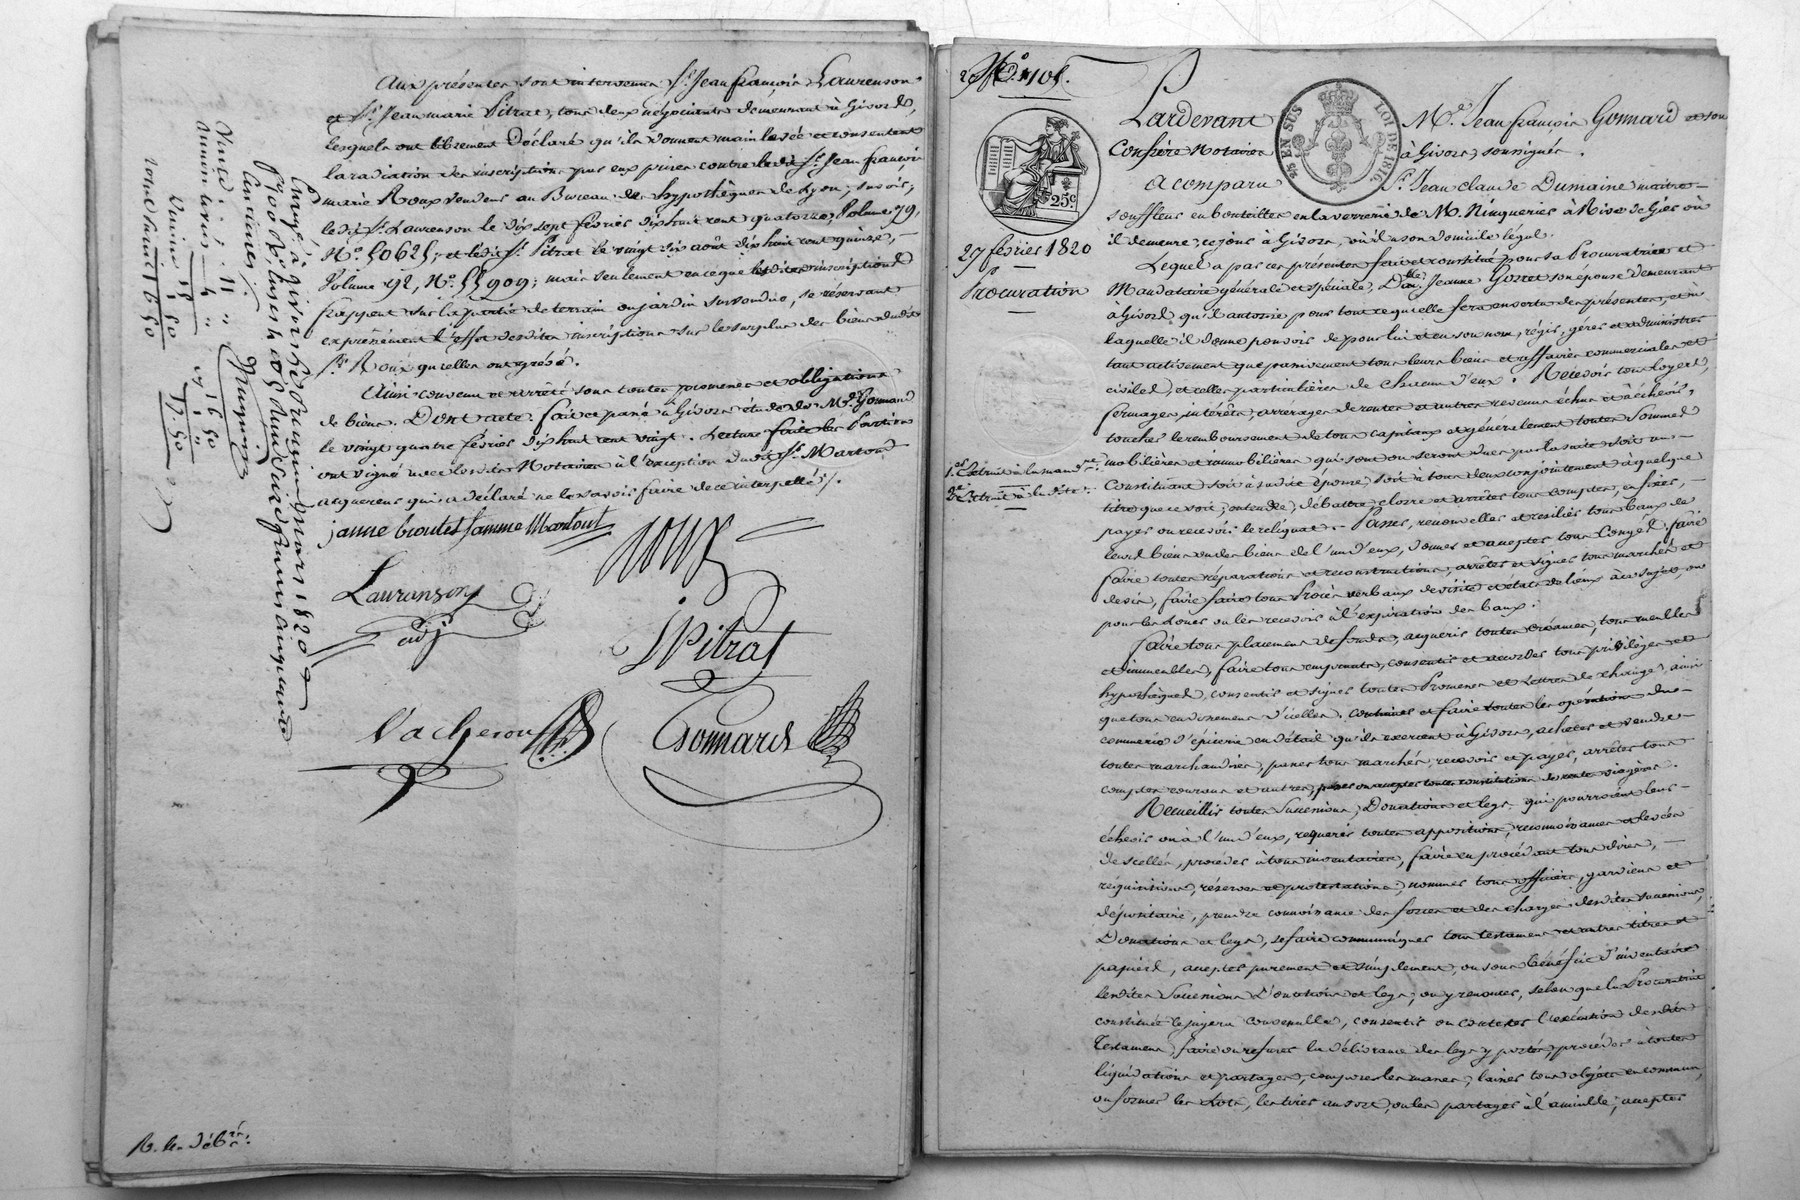 Aux présentes sont intervenus Sr. Jean françois Laurenson
et Sr. Jean marie Pitrat, tous deux négociants demeurant à Givors,
lesquels ont librement Déclaré qu'ils donnent main levée et consentent
la radiation des inscriptions par eux prises contre ledit Sr. Jean françois
marie Roux vendeur au Bureau des hypothèques de Lyon, savoir,
ledit Sr. Laurenson le dix sept février dix huit cent quatorze, Volume 79,
No. 50625; et ledit Sr. Pitrat le vingt dix août dix huit cent quinze,
Volume 92, No. 55909; mais seulement en ce que lesdites inscriptions
frappent sur la partie de terrain ou jardin survendue, se réservant
expressément l'effet desdites inscriptions sur le surplus des biens dudit
Sr. Roux qu'elles ont grévé.
Ainsi convenu et arrêté sous toutes promesses et obligations
de biens. Dont acte. fait et passé à Givors étude de Me. Gonnard
le vingt quatre février dix huit cent vingt. Lecture faite les Parties
ont signé avec lesdits Notaires à l'exception dudit Sr. Martoud
acquéreur qui a déclaré ne le savoir faire de ce interpellé /.
janne troulet famme Martout
Roux
Lauranson
adj
JPitrat
Vacheron
Gonnard
Enregé à givors le deux mars 1820
No. 1105.
27 février 1820
Procuration
25c
25 EN SUS
LOI DE 1816.
Pardevant Me. Jean françois Gonnard et son
Confrère Notaires à Givors, soussignés.
A comparu Sr. Jean claude Dumaine maître
souffleur en bouteilles en la verrerie de M. Ninqueries à Rive de Gier où
il demeure, ce jour à Givors, où il a son domicile légal.
Lequel a par ces présentes fait et constitué pour sa Procuratrice et
Mandataire générale et spéciale, Dame Jeanne Gozet son épouse demeurant
à Givors qu'il autorise pour tout ce qu'elle fera en vertu des présentes, et à
laquelle il donne pouvoir de pour lui et en son nom, régir, gérer et administrer
tant activement que passivement tous leurs biens et affaires commerciales et
civiles, et celles particulières de chacun d'eux. Recevoir tous loyers,
fermages, intérêts, arrérages de rentes et autres revenus échus et à échoir,
toucher le remboursement de tous capitaux et généralement toutes Sommes
mobilières et immobilières qui sont ou seront dues par la suite soit au
Constituant soit à sadite épouse, soit à tous deux conjointement à quelque
titre que ce soit; entendre, débattre, clore et arrêter tous comptes, en fixer,
payer ou recevoir le reliquat. Passer, renouveller et resilier tous baux de
leurs biens ou des biens de l'un d'eux, donner et accepter tous Congés, faire
faire toutes réparations et reconstructions, arrêter et signer tous marchés et
devis, faire faire tous Procès verbaux de visite et etats de lieux à ce sujet, ou
pour les Louer ou les recevoir à l'expiration des baux.
Faire tous placemens de fonds, acquérir toutes créances, tous meubles
et immeubles, faire tous emprunts, consentir et accorder tous privilèges et
hypothèques, consentir et signer toutes Promesses et Lettres de change, ainsi
que tous endossemens d'icelles. continuer et faire toutes les opérations du
commerce d'épicerie en détail qu'ils exercent à Givors, acheter et vendre
toutes marchandises, passer tous marchés, recevoir et payer, arrêter tous
comptes courans et autres, passer ou accepter toutes constitutions de rente viagère.
Recueillir toutes Successions, Donations et legs qui pourroient leur
échoir ou à l'un d'eux, requérir toutes appositions, reconnoissances et levées
de scellés, procéder à tous inventaires, faire en procédant tous dires,
réquisitions, réserves et protestations, nommer tous officiers, gardiens et
dépositaires, prendre connoissance des forces et des charges desdites successions,
Donations et legs, se faire communiquer tous testamens et autres titres et
papiers, accepter purement et simplement, ou sous bénéfice d'inventaire
lesdites Successions Donations et legs, ou y renoncer, selon que la Procuratrice
constituée le jugera convenable, consentir ou contester l'exécution desdits
Testamens, faire ou refuser la délivrance des legs y portés, procéder à toutes
liquidations et partages, composer les masses, laisser tous objets en commun,
ou former les Lots, les tirer au sort, ou les partager à l'amiable; accepter